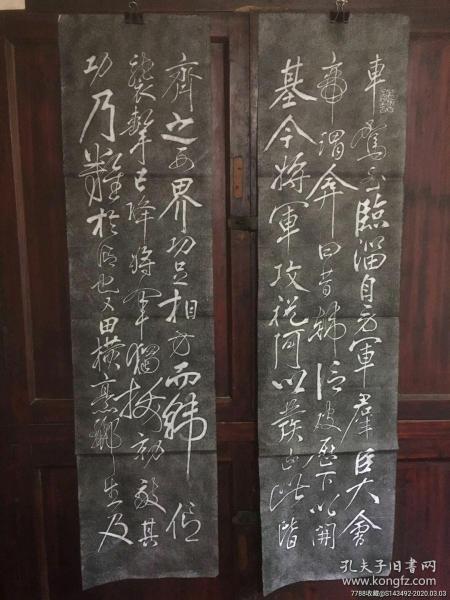 車駕至臨淄自勞軍群臣大會
帝謂弇曰昔韓信破歷下以開
基今將軍攻祝阿以發迹此皆
齊之西界功足相方而韓信
襲擊已降將軍獨拔勍敵其
功乃難於信也又田橫烹酈生及
孔夫子旧书网
www.kongfz.com
7788收藏@S143492-2020.03.03